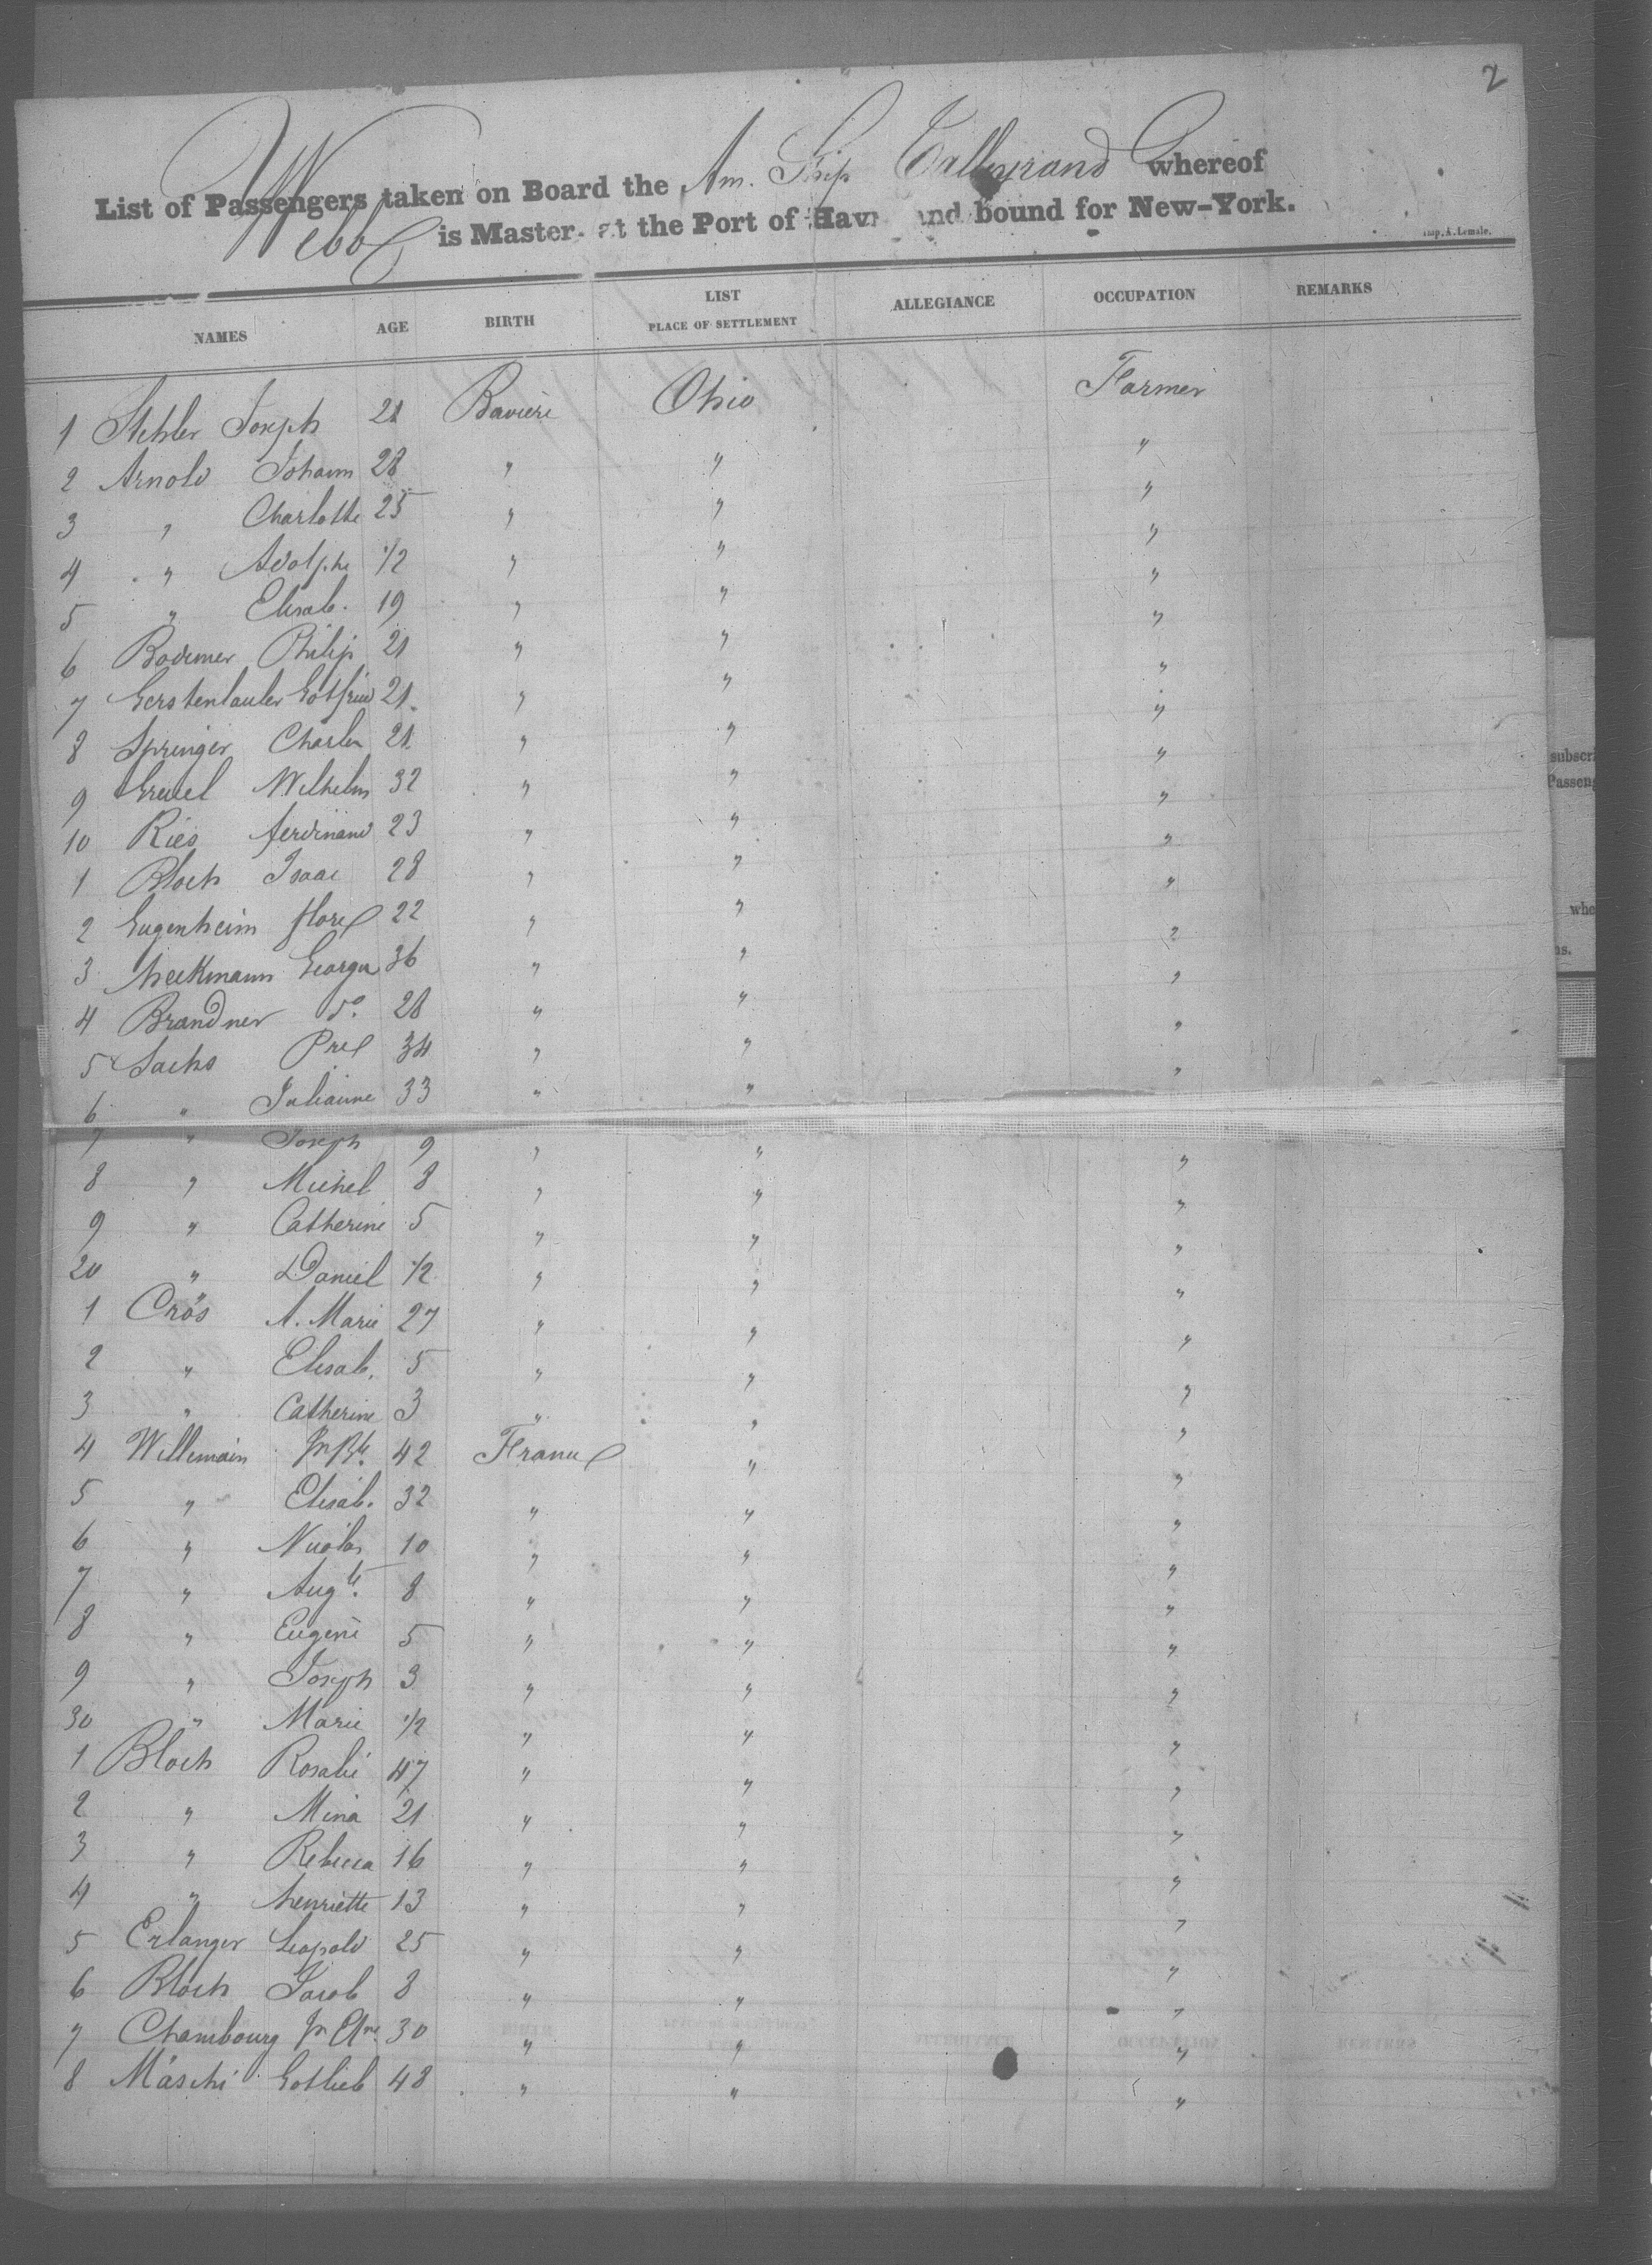 2
List of Passengers taken on Board the Am. Ship Talleyrand whereof
Webb is Master. at the Port of Havr and bound for New-York.
Imp. A. Lemale.
NAMES AGE BIRTH LIST PLACE OF SETTLEMENT ALLEGIANCE OCCUPATION REMARKS
1 Stehler Joseph 21 Bavière Ohio Farmer
2 Arnold Johann 28 " " "
3 " Charlotte 25 " " "
4 " Adolphe 1/2 " " "
5 " Elisab. 19 " " "
6 Bodemer Philip 21 " " "
7 Gerstenlauler Gotfried 21 " " "
8 Springer Charles 21 " " "
9 Greuel Wilhelm 32 " " "
10 Ries ferdinand 23 " " "
1 Bloch Isaac 28 " " "
2 Gugenheim flore 22 " " "
3 heckmann George 36 " " "
4 Brandner do. 28 " " "
5 Sachs Pre 34 " " "
6 " Julianne 33 " " "
7 " Joseph 9 " " "
8 " Michel 8 " " "
9 " Catherine 5 " " "
20 " Daniel 1/2 " " "
1 Crös A. Marie 27 " " "
2 " Elisab. 5 " " "
3 " Catherine 3 " " "
4 Willemain Jn Bte. 42 France " "
5 " Elisab. 32 " " "
6 " Nicolas 10 " " "
7 " Augte. 8 " " "
8 " Eugene 5 " " "
9 " Joseph 3 " " "
30 " Marie 1/2 " " "
1 Bloch Rosalie 47 " " "
2 " Mina 21 " " "
3 " Rebecca 16 " " "
4 " henriette 13 " " "
5 Erlanger Leopold 25 " " "
6 Bloch Jacob 8 " " "
7 Chambourg Jn 30 " " "
8 Mäschi Gotlieb 48 " " "
subscri
Passeng
whe
ns.